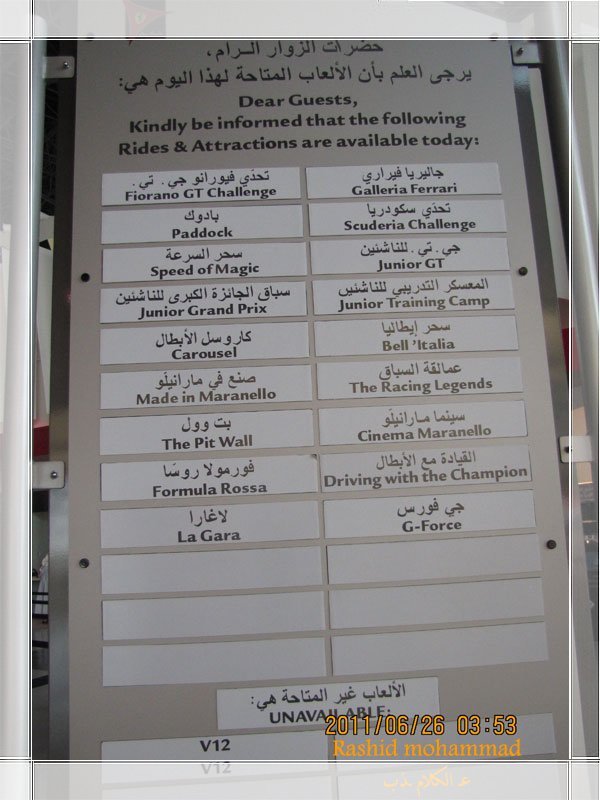 حضرات الزوار الـرام،
يرجى العلم بأن الألعاب المتاحة لهذا اليوم هي:
Dear Guests,
Kindly be informed that the following
Rides & Attractions are available today:
تحدّي فيورانو جي. تي.
Fiorano GT Challenge
جاليريا فيراري
Galleria Ferrari
بادوك
Paddock
تحدّي سكودريا
Scuderia Challenge
سحر السرعة
Speed of Magic
جي. تي. للناشئين
Junior GT
سباق الجائزة الكبرى للناشئين
Junior Grand Prix
المعسكر التدريبي للناشئين
Junior Training Camp
كاروسل الأبطال
Carousel
سحر إيطاليا
Bell 'Italia
صنع في مارانيلّو
Made in Maranello
عمالقة السباق
The Racing Legends
بت وول
The Pit Wall
سينما مارانيلّو
Cinema Maranello
فورمولا روسّا
Formula Rossa
القيادة مع الأبطال
Driving with the Champion
لاغارا
La Gara
جي فورس
G-Force
الألعاب غير المتاحة هي:
UNAVAILABLE:
2011/06/26 03:53
V12
Rashid mohammad
V12